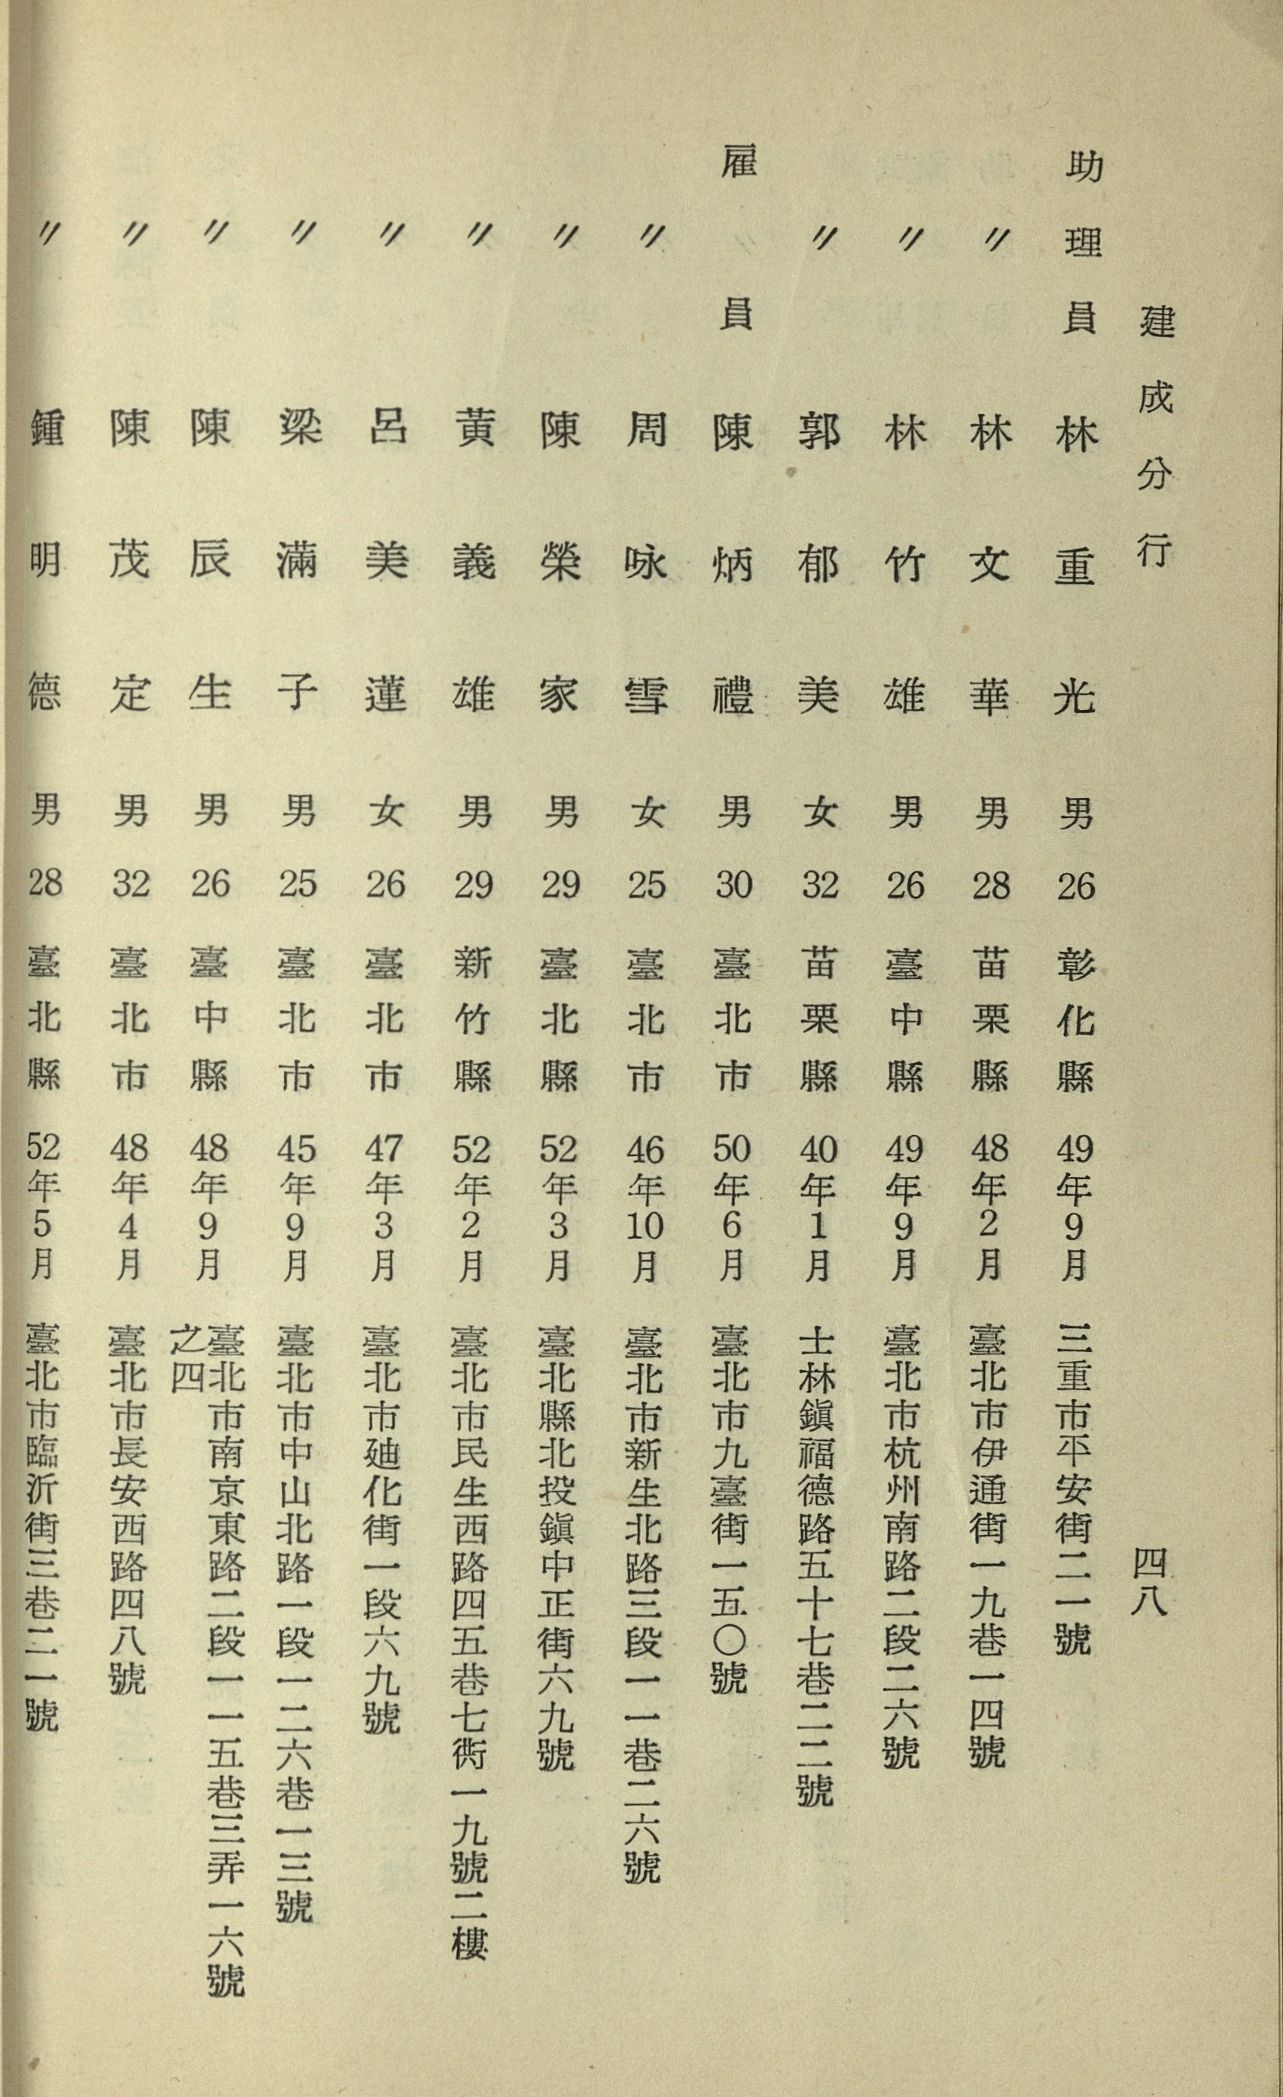 建成分行 四八
助理員 林重光 男 26 彰化縣 49年9月 三重市平安街二一號
〃 林文華 男 28 苗栗縣 48年2月 臺北市伊通街一九巷一四號
〃 林竹雄 男 26 臺中縣 49年9月 臺北市杭州南路二段二六號
〃 郭郁美 女 32 苗栗縣 40年1月 士林鎭福德路五十七巷二二號
雇員 陳炳禮 男 30 臺北市 50年6月 臺北市九臺街一五〇號
〃 周咏雪 女 25 臺北市 46年10月 臺北市新生北路三段一一巷二六號
〃 陳榮家 男 29 臺北縣 52年3月 臺北縣北投鎭中正街六九號
〃 黃義雄 男 29 新竹縣 52年2月 臺北市民生西路四五巷七衖一九號二樓
〃 呂美蓮 女 26 臺北市 47年3月 臺北市廸化街一段六九號
〃 梁滿子 男 25 臺北市 45年9月 臺北市中山北路一段一二六巷一三號
〃 陳辰生 男 26 臺中縣 48年9月 臺北市南京東路二段一一五巷三弄一六號
之四
〃 陳茂定 男 32 臺北市 48年4月 臺北市長安西路四八號
〃 鍾明德 男 28 臺北縣 52年5月 臺北市臨沂街三巷二一號